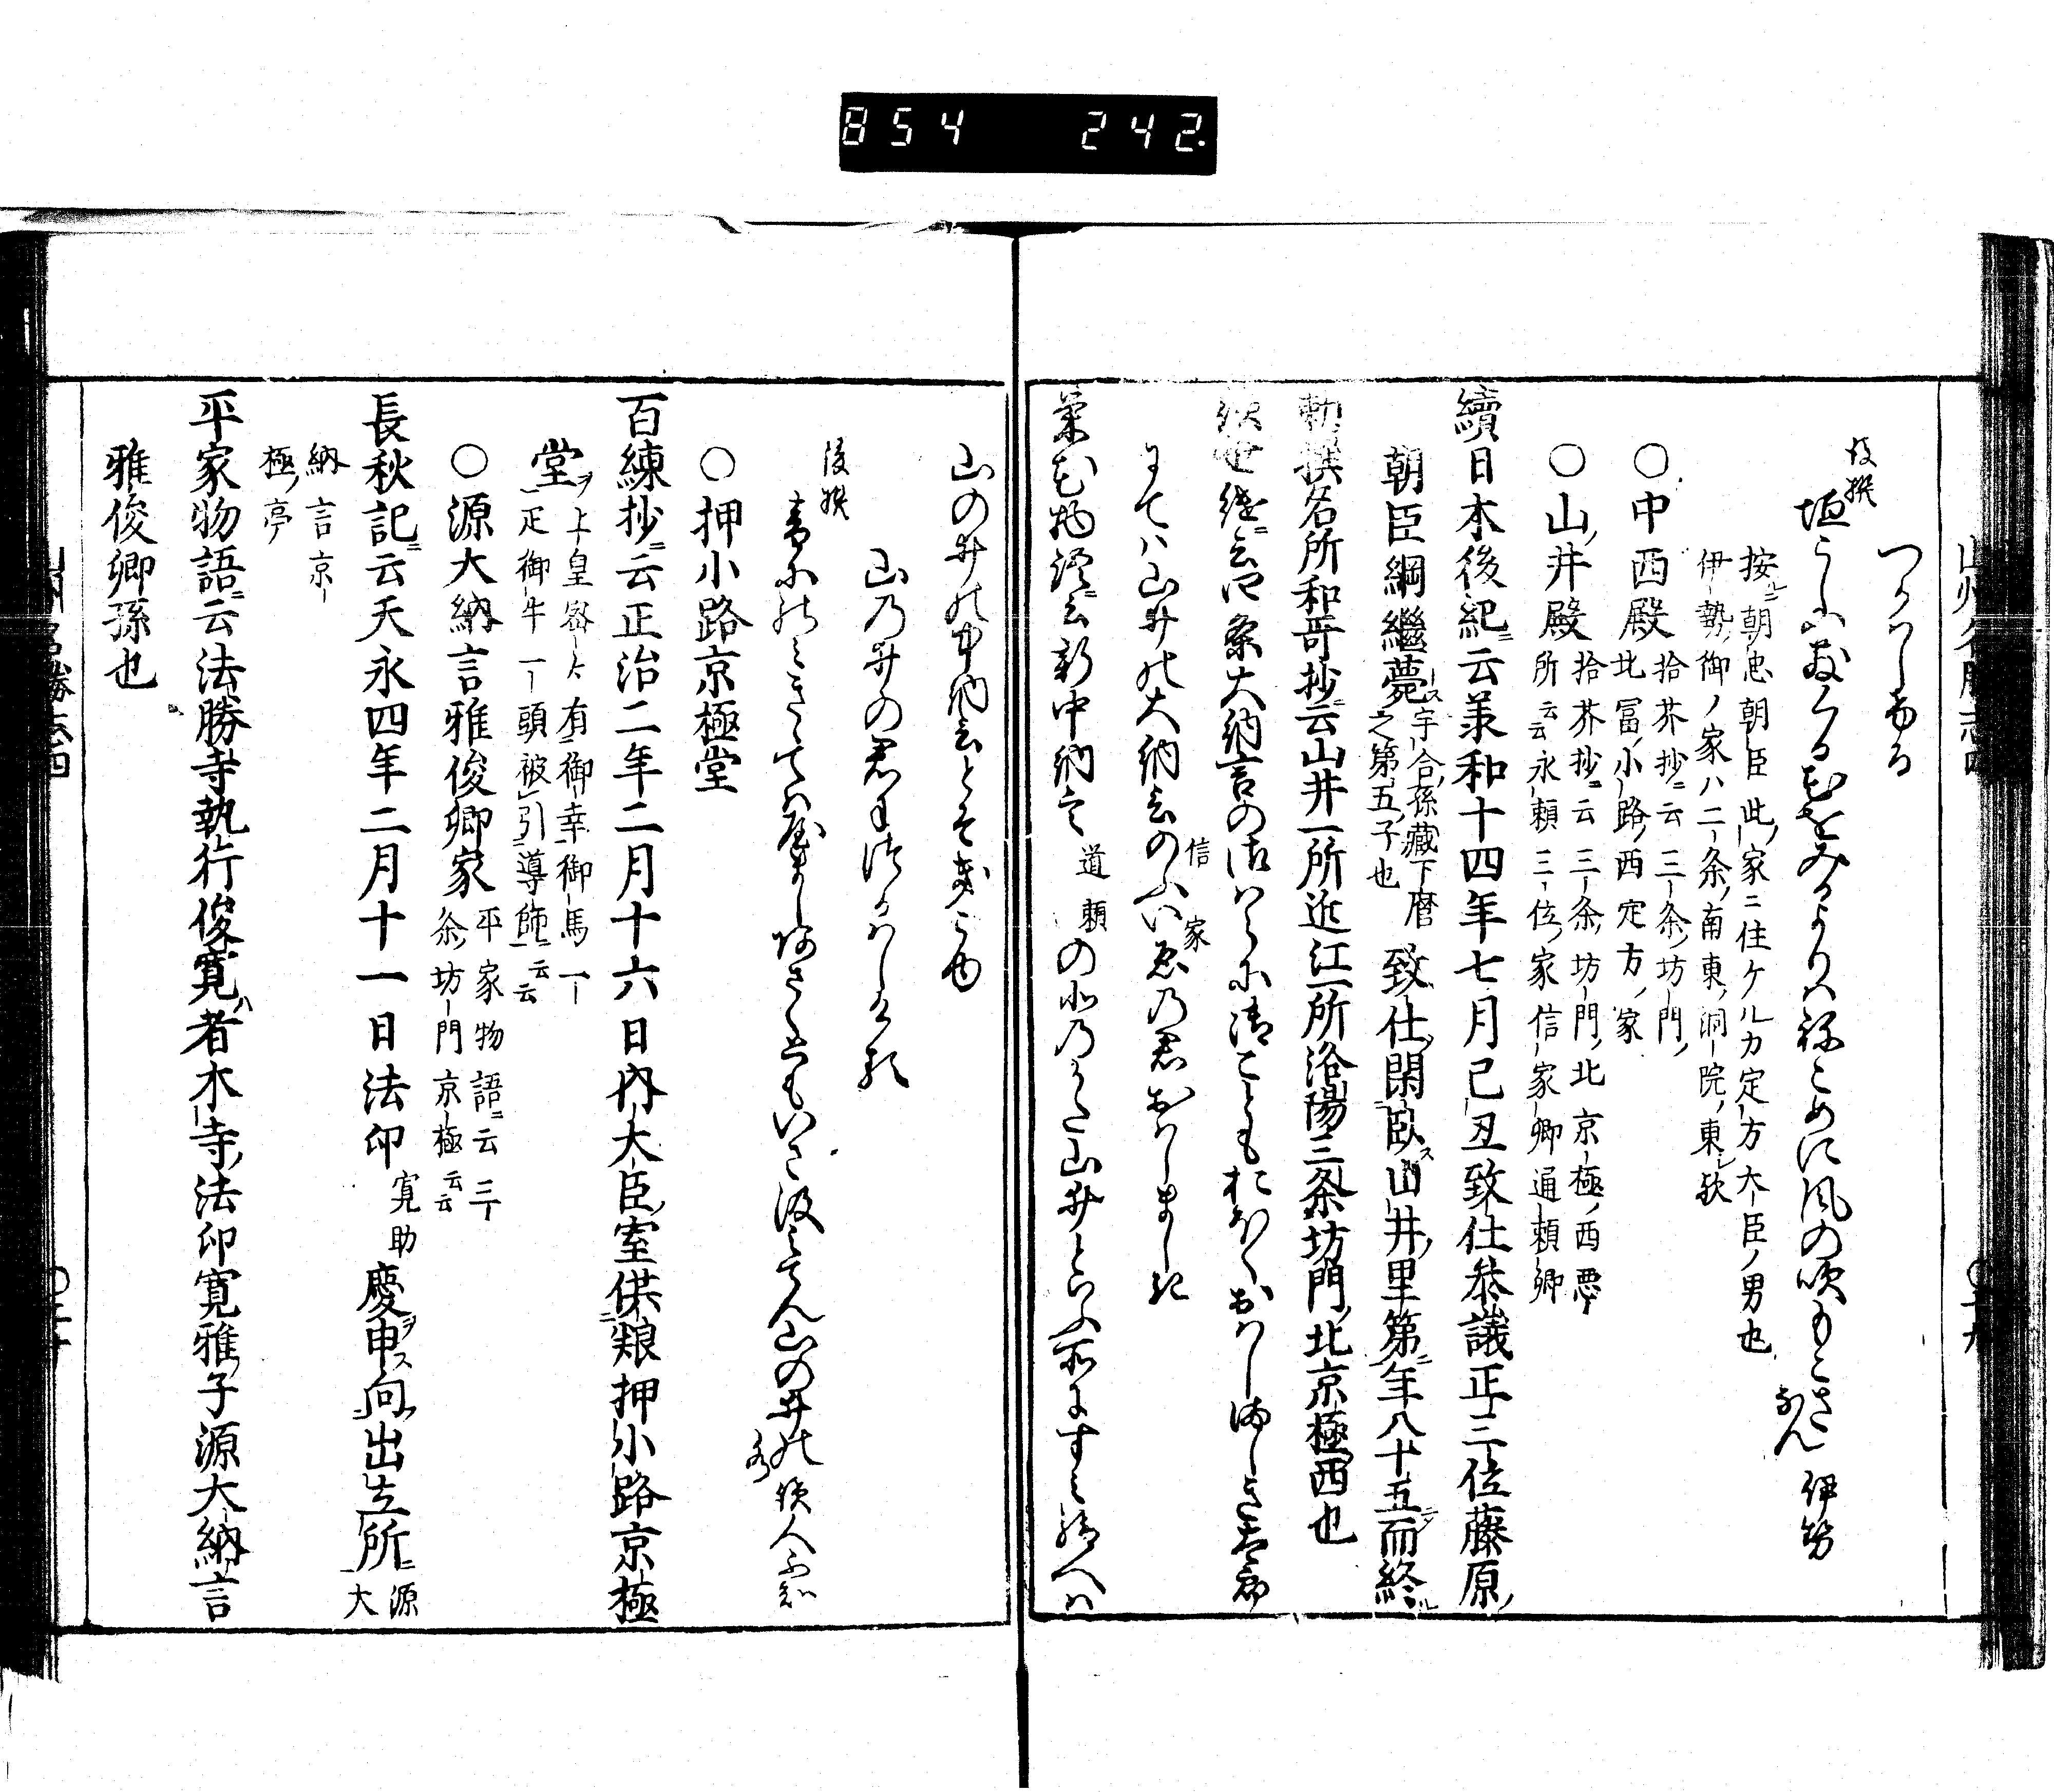 854 242.
つかはしける
後撰
垣こしにちりくる花をみるよりはねこめに風の吹もこさなん 伊勢
按ルニ朝忠朝臣此ノ家ニ住ケルカ定方大臣ノ男也
伊勢ノ御ノ家ハ二条ノ南東ノ洞院ノ東レ歟
○中西殿 拾芥抄ニ云三条坊門ノ
北冨ノ小路ノ西定方ノ家
○山ノ井殿 拾芥抄ニ云三条坊門ノ北京極ノ西悪
所云云永頼三位ノ家信家卿通頼卿
續日本後紀ニ云羕和十四年七月己丑致仕叅議正三位藤原ノ
朝臣綱繼薨ス 宇合ノ孫藏下麿
之第五ノ子也 致仕閑臥ス山井ノ里第ニ年八十五ニシテ而終ル
勅撰名所和哥抄ニ云山井一所近江一所洛陽三条坊門ノ北京極ノ西也
續世継ニ云四条大納言の御はらに清こともおほくおはしましき太郎
にては山井の大納言のふいゑの君おはしましき
信家
榮花物語ニ云新中納言 道頼 の北のかた山井といふ所にすみ給へは
山の井の中納言とそきこゆ
山乃井の君につかはしける
後撰
音にのみきゝてはやましあさくともいさ汲みてん山の井の水 讀人不知
○押小路京極堂
百練抄ニ云正治二年二月十六日内大臣ノ室供粮押小路京極
堂ヲ 上皇密ニ有御幸御馬一
疋御牛一頭被引導師ニ云云
○源大納言雅俊卿家 平家物語ニ云三
条ノ坊門京極云云
長秋記ニ云天永四年二月十一日法印 寛助 慶申ヲス向出立所ニ 源
大
納言京
極ノ亭
平家物語ニ云法勝寺執行俊寛ハ者木寺ノ法印寛雅ノ子源大納言
雅俊卿孫也